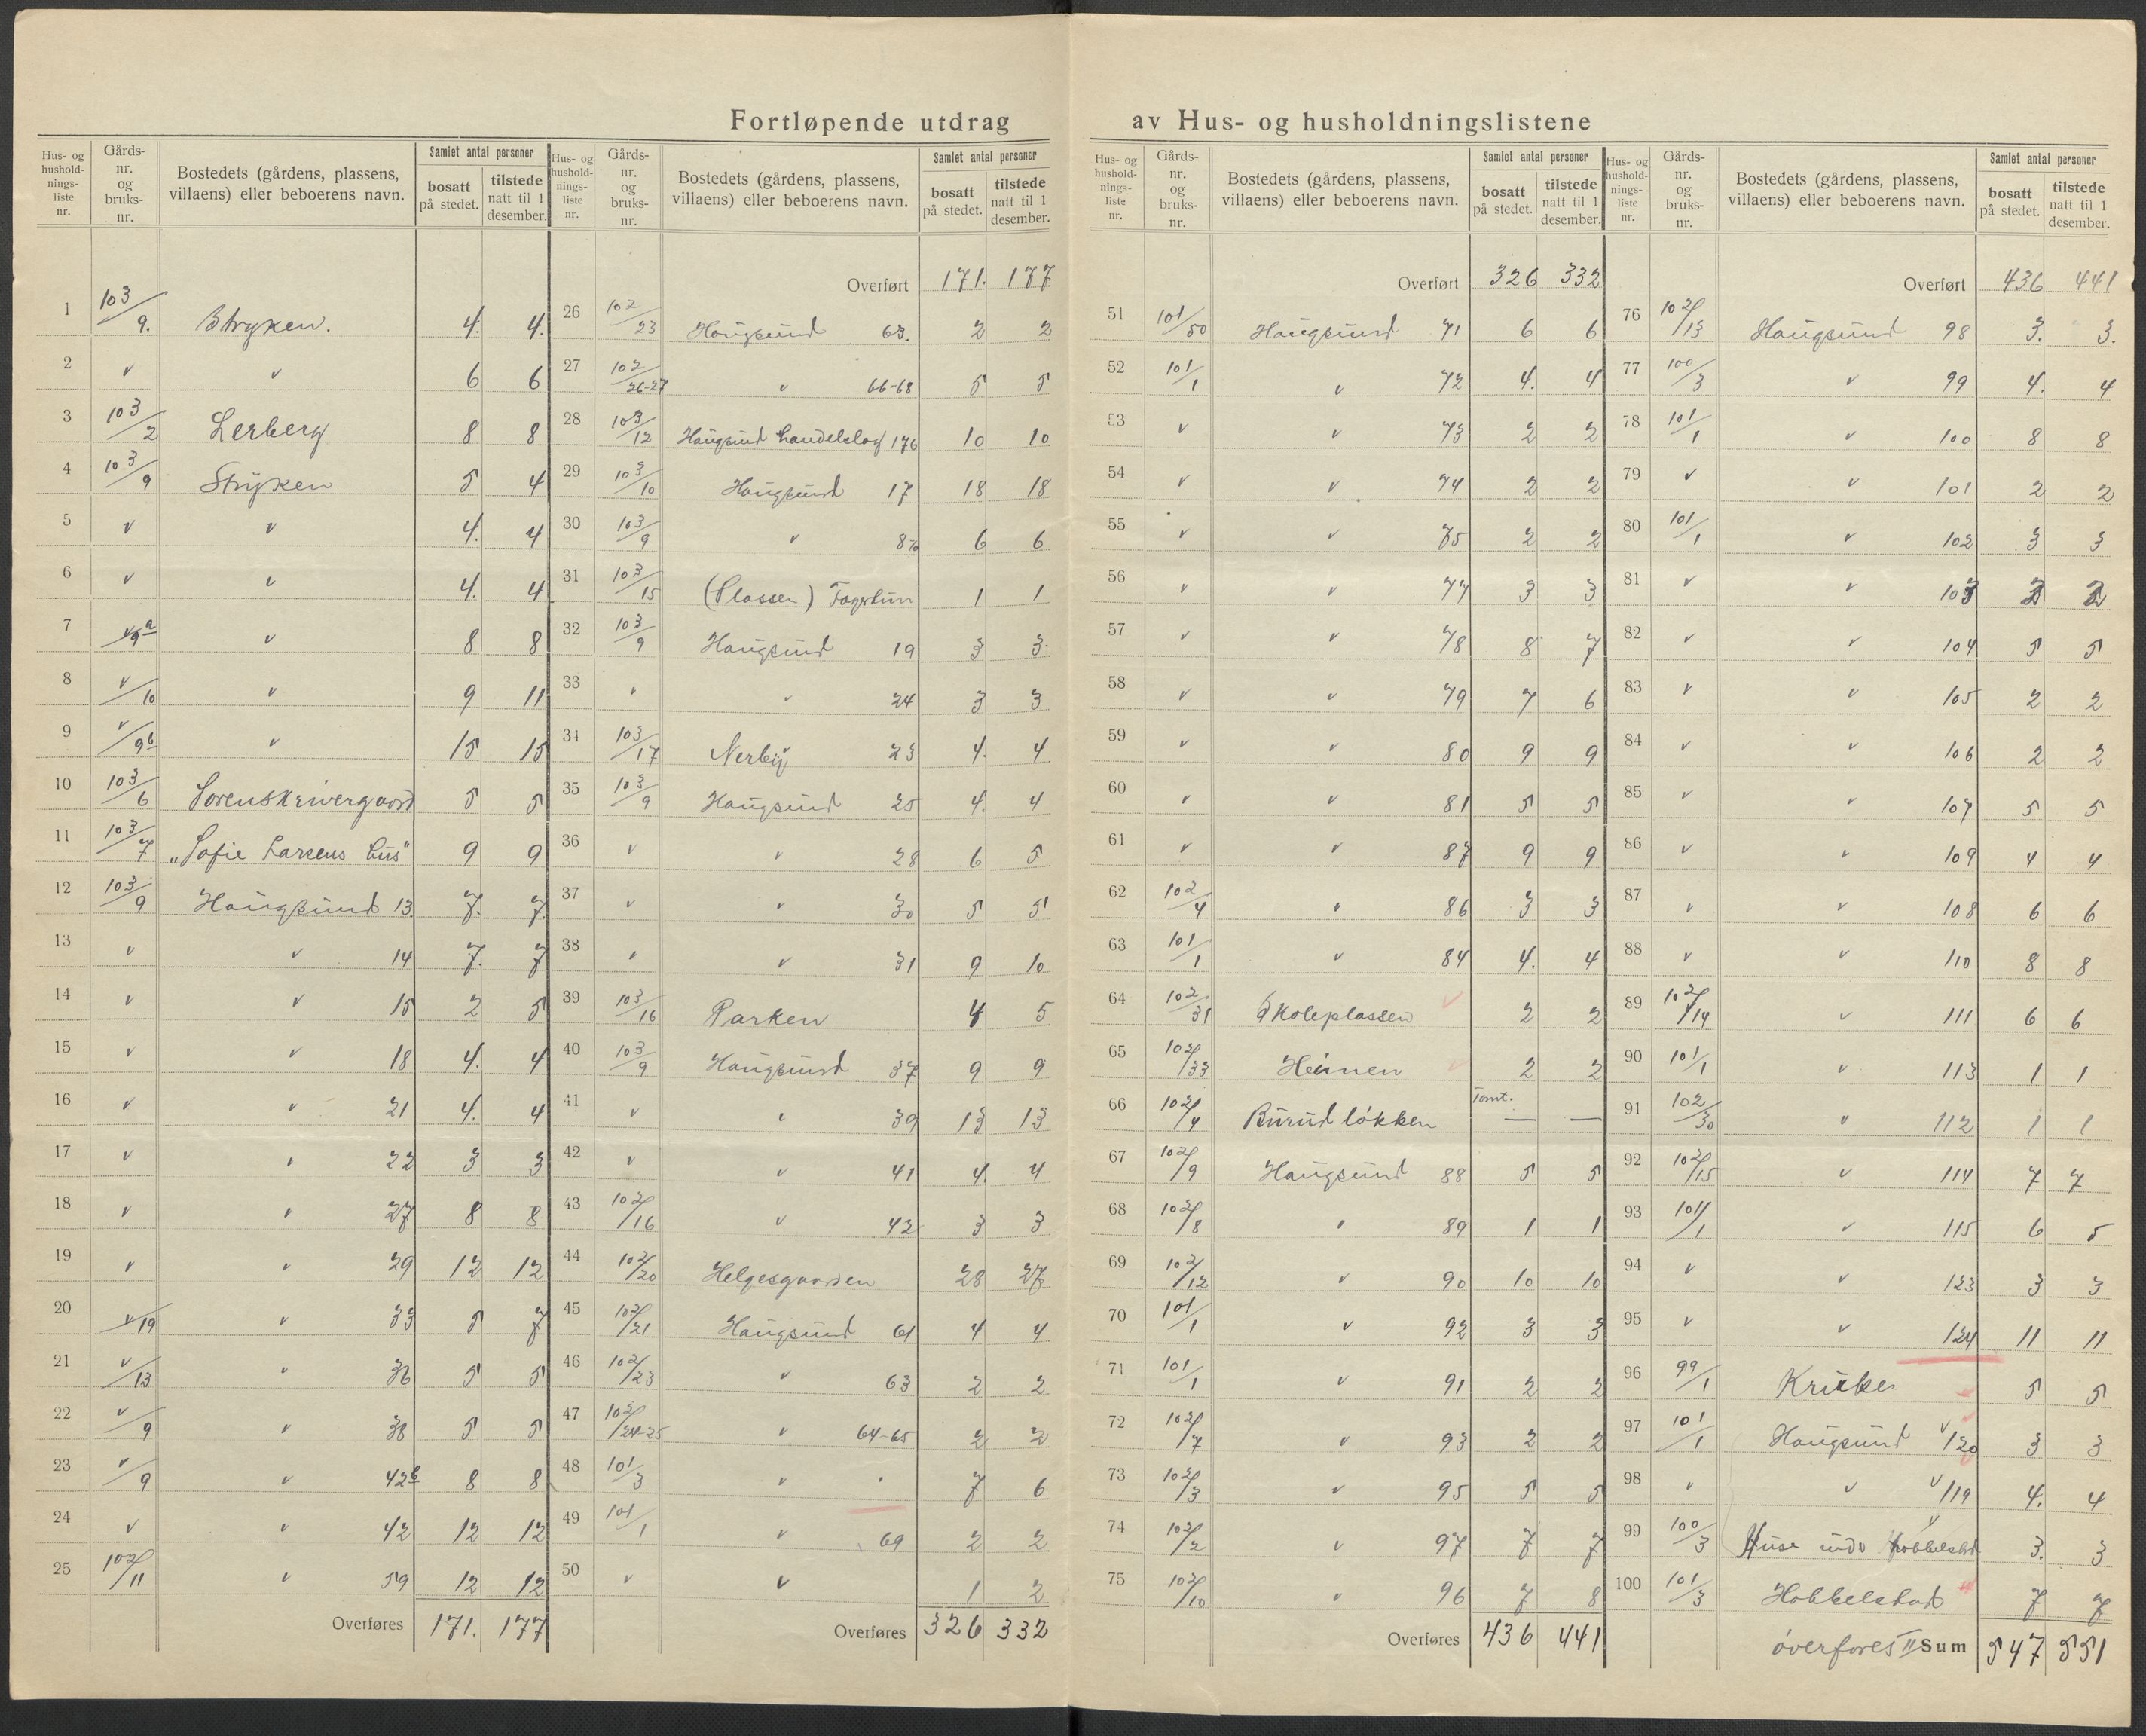 Fortløpende utdrag av Hus- og husholdningslistene
Hus- og hushold-nings-liste nr. | Gårds-nr. og bruks-nr. | Bostedets (gårdens, plassens, villaens) eller beboerens navn. | Samlet antal personer | bosatt på stedet. | tilstede natt til 1 desember.
1 103/9. Stryken. 4. 4.
2 v v 6 6
3 103/2 Lerberg 8 8
4 103/9 Stryken 5 4
5 v v 4. 4
6 v v 4. 4
7 v/9a v 8 8
8 v/10 v 9 11
9 v/9b v 15 15
10 103/6 Sorenskrivergaard 5 5
11 103/7 „Sofie Larsens hus" 9 9
12 103/9 Haugsund 13. 7. 7.
13 v v 14 7. 7
14 v v 15 2 5
15 v v 18 4. 4
16 v v 21 4. 4
17 v v 22 3 3
18 v v 27 8 8
19 v v 29 12 12
20 v/19 v 33 5 7
21 v/13 v 36 5 5
22 v/9 v 38 5 5
23 v/9 v 42b 8 8
24 v v 42 12 12
25 102/11 v 59 12 12
Overføres 171. 177
Hus- og hushold-nings-liste nr. | Gårds-nr. og bruks-nr. | Bostedets (gårdens, plassens, villaens) eller beboerens navn. | Samlet antal personer | bosatt på stedet. | tilstede natt til 1 desember.
Overført 171. 177
26 102/23 Haugsund 63. 2 2
27 102/26-27 v 66-68 5 5
28 103/12 Haugsund handelslag 176 10 10
29 103/10 Haugsund 17 18 18
30 103/9 v 6 6
31 103/15 (Plassen) Fagerlun 1 1
32 103/9 Haugsund 19 3 3.
33 v v 24 3 3
34 103/17 Nerby 23 4. 4
35 103/9 Haugsund 25 4. 4
36 v v 28 6 5
37 v v 30 5 5
38 v v 31 9 10
39 103/16 Parken 4 5
40 103/9 Haugsund 37 9 9
41 v v 39 13 13
42 v v 41 4. 4
43 102/16 v 42 3 3
44 102/20 Helgesgaarden 28 27
45 102/21 Haugsund 61 4 4
46 102/23 v 63 2 2
47 102/24-25 v 64-65 2 2
48 101/3 v 7 6
49 101/1 v 69 2 2
50 v v 1 2
Overføres 326 332
Hus- og hushold-nings-liste nr. | Gårds-nr. og bruks-nr. | Bostedets (gårdens, plassens, villaens) eller beboerens navn. | Samlet antal personer | bosatt på stedet. | tilstede natt til 1 desember.
Overført 326 332
51 101/50 Haugsund 71 6 6
52 101/1 v 72 4. 4
53 v v 73 2 2
54 v v 74 2 2
55 v v 75 2 2
56 v v 77 3 3
57 v v 78 8 7
58 v v 79 7 6
59 v v 80 9 9
60 v v 81 5 5
61 v v 87 9 9
62 102/4 v 86 3 3
63 101/1 v 84 4. 4
64 102/31 Skoleplassen 2 2
65 102/33 Heimen 2 2
66 102/4 Burud løkken Tomt. — —
67 102/9 Haugsund 88 5 5
68 102/8 v 89 1 1
69 102/12 v 90 10 10
70 101/1 v 92 3 3
71 101/1 v 91 2 2
72 102/7 v 93 2 2
73 102/3 v 95 5 5
74 102/2 v 97 7 7
75 102/10 v 96 7 8
Overføres 436 441
Hus- og hushold-nings-liste nr. | Gårds-nr. og bruks-nr. | Bostedets (gårdens, plassens, villaens) eller beboerens navn. | Samlet antal personer | bosatt på stedet. | tilstede natt til 1 desember.
Overført 436 441
76 102/13 Haugsund 98 3. 3.
77 100/3 v 99 4. 4
78 101/1 v 100 8 8
79 v v 101 2 2
80 101/1 v 102 3 3
81 v v 103 2 2
82 v v 104 5 5
83 v v 105 2 2
84 v v 106 2 2
85 v v 107 5 5
86 v v 109 4 4
87 v v 108 6 6
88 v v 110 8 8
89 102/14 v 111 6 6
90 101/1 v 113 1 1
91 102/30 v 112 1 1
92 102/15 v 114 7 7
93 101/1 v 115 6 5
94 v v 123 3 3
95 v v 124 11 11
96 99/1 5 5
97 101/1 Haugsund v 120 3 3
98 v v v 119 4. 4
99 100/3 Huse Hobbelstad 3. 3
100 101/3 Hobbelstad 7 7
overføres II Sum 547 551